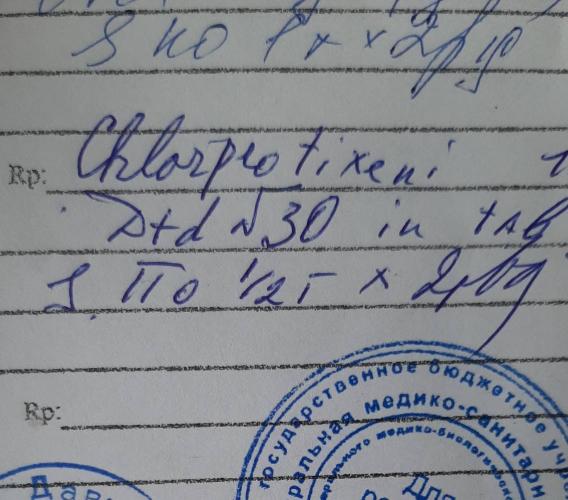 S по 1т x 2р/д
Rp: Chlorprotixeni 1
D t d № 30 in tab
S. По 1/2 т x 2р/д
Rp:
государственное бюджетное учр
ральная медико-санитарн
медико-биологи
Для
Дав